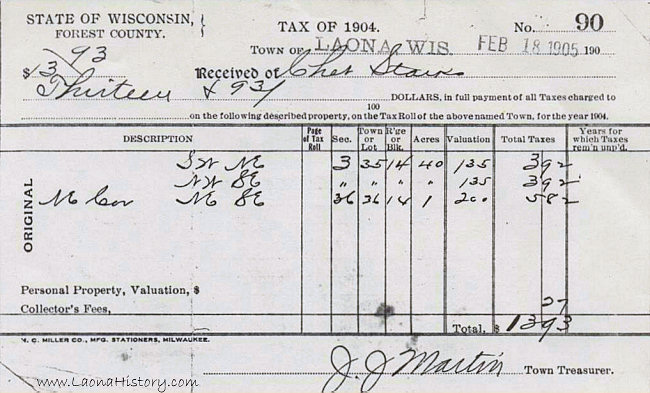 STATE OF WISCONSIN,
FOREST COUNTY.
TAX OF 1904.
No. 90
TOWN OF LAONA, WIS. FEB 18 1905 190
$13 93 Received of Chet Stairs
Thirteen & 93/100 DOLLARS, in full payment of all Taxes charged to
on the following described property, on the Tax Roll of the above named Town, for the year 1904.
DESCRIPTION Page of Tax Roll Sec. Town or Lot R'ge or Blk. Acres Valuation Total Taxes Years for which Taxes rem'n unp'd.
ORIGINAL
SW NE 3 35 14 40 135 392
NW SE " " " " 135 392
NE Cor NE SE 36 36 14 1 200 582
Personal Property, Valuation, $
Collector's Fees, 27
Total, $ 1393
H. C. MILLER CO., MFG. STATIONERS, MILWAUKEE.
J. J. Martin Town Treasurer.
www.LaonaHistory.com